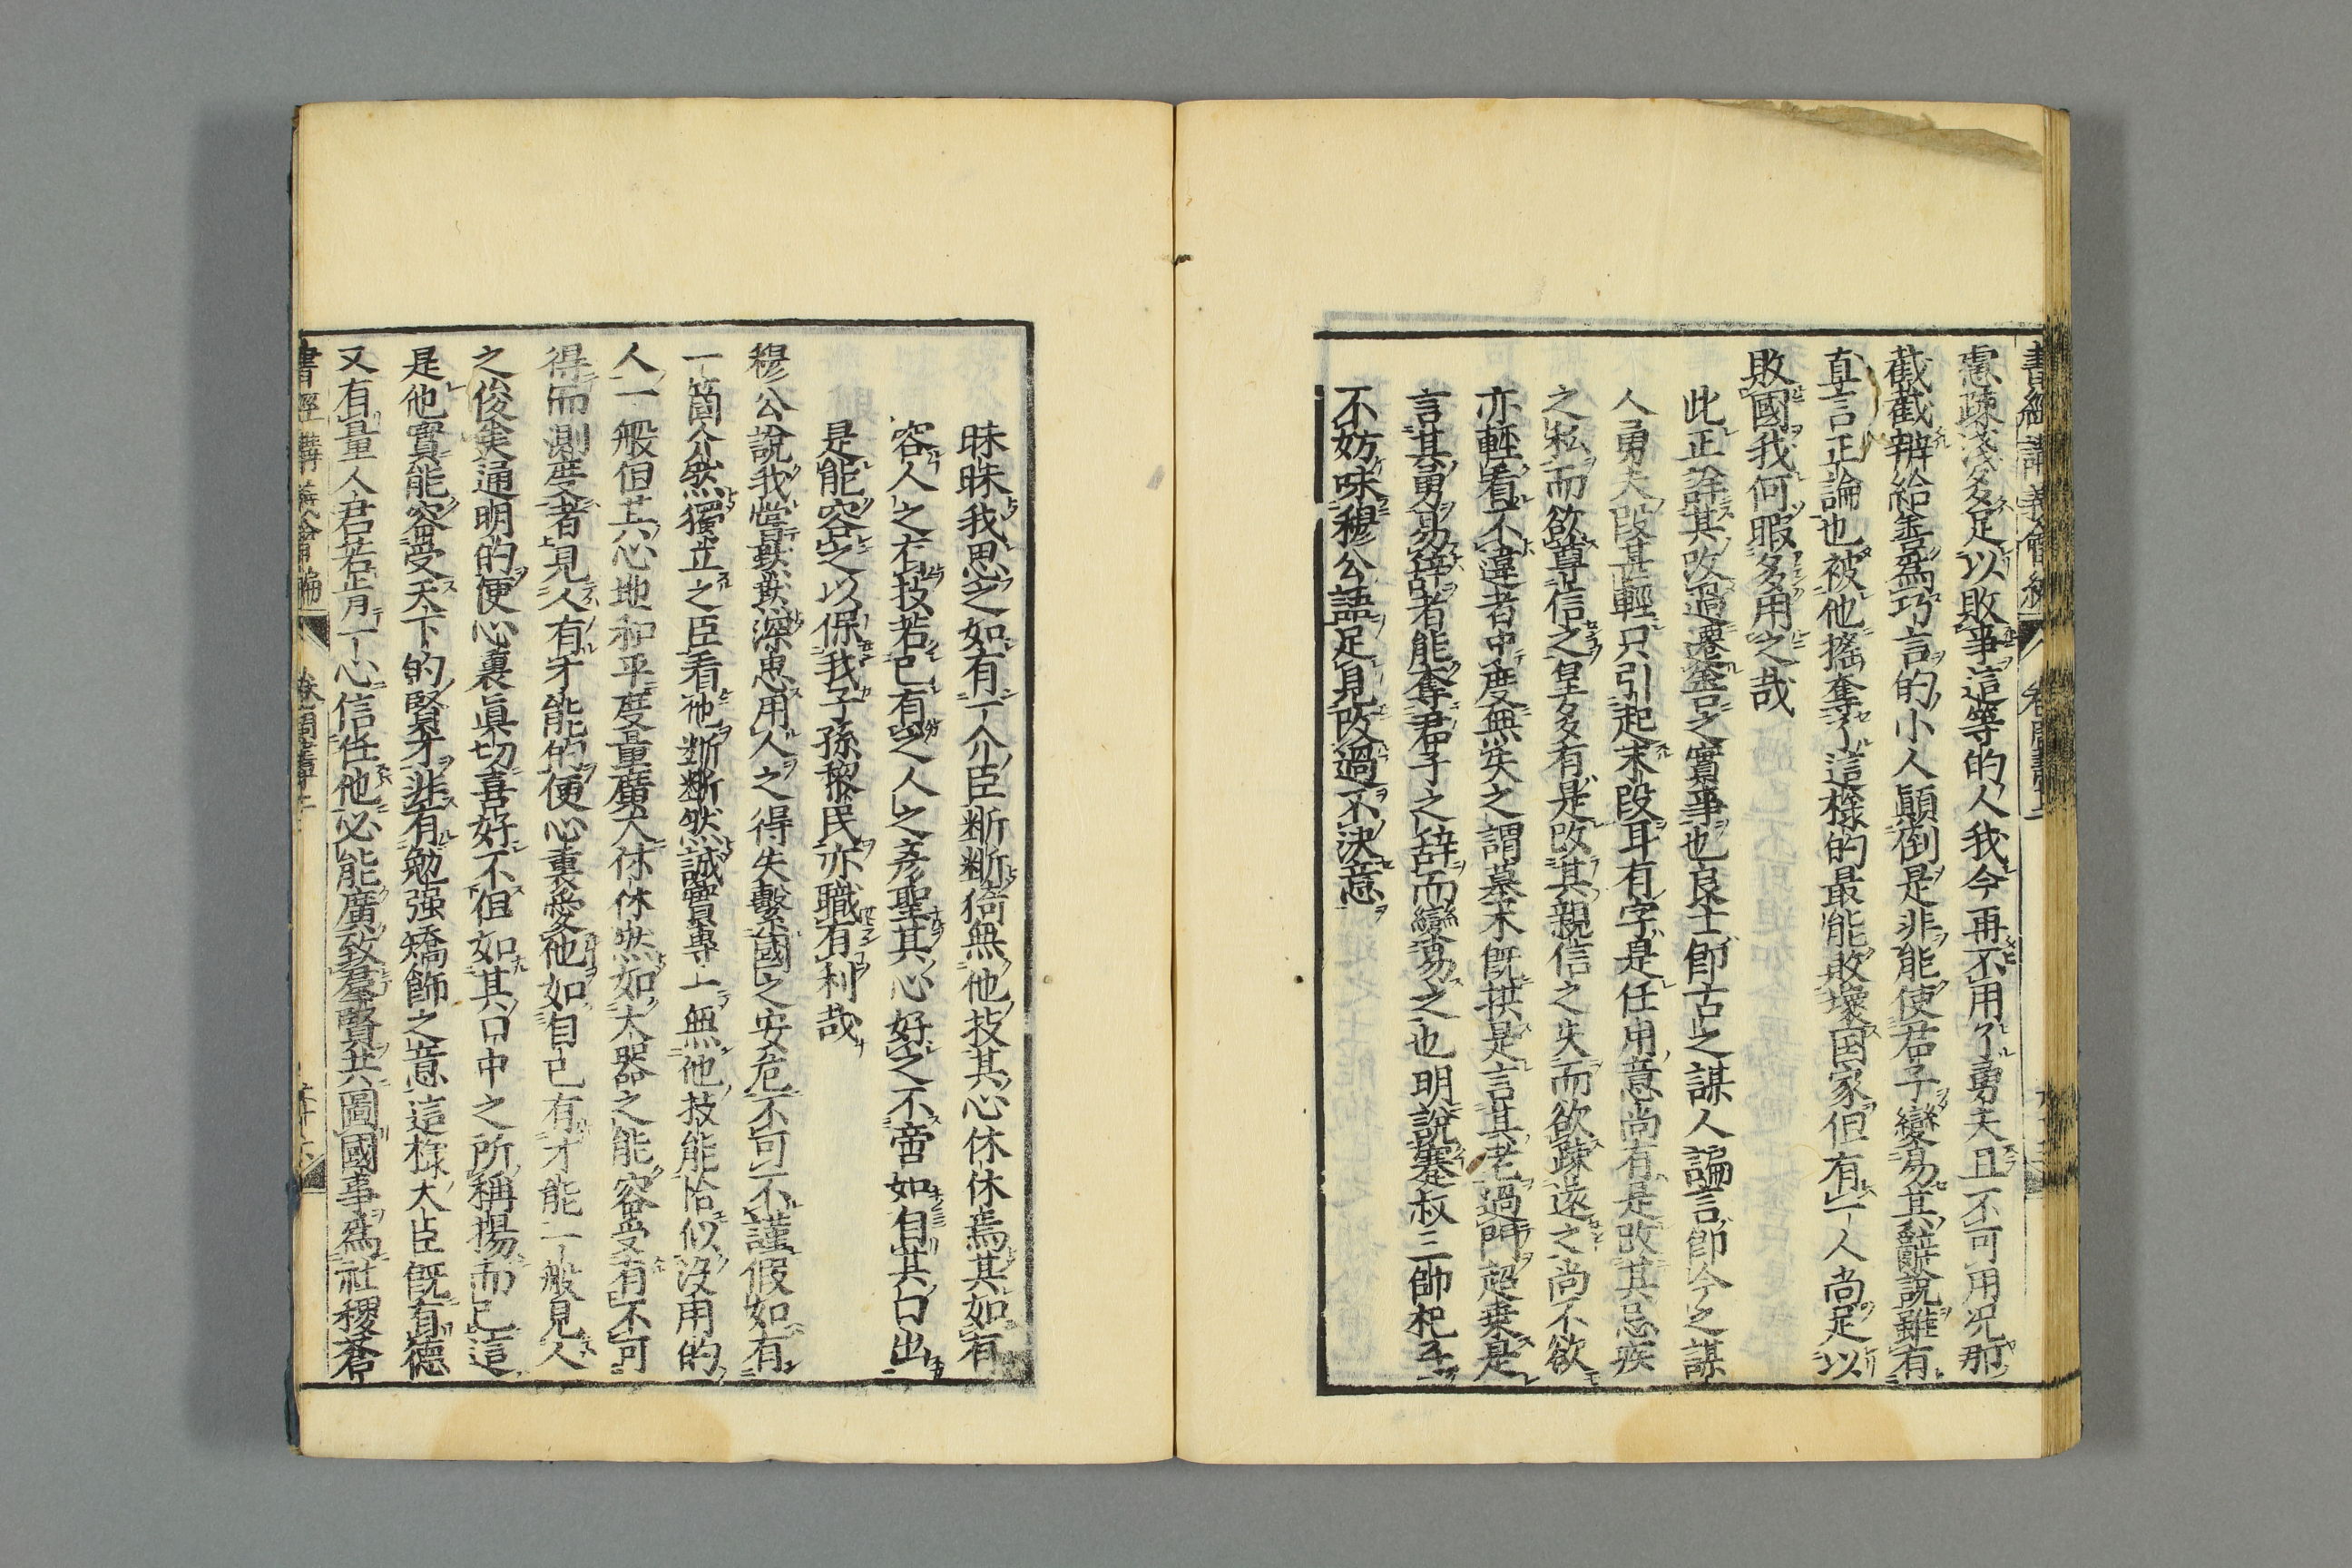 書經講義會編 卷 周書
慮疎淺多足以敗事這等的人我今再不用了勇夫且不可用况那
截截辨給善爲巧言的小人顚倒是非能使君子變易其辭說雖有
真言正論也被他搖奪了這樣的最能敗壞囯家但有一人尚足以
敗國我何暇多用之哉
此正詳其改過遷善之實事也良士即古之謀人諞言即今之謀
人勇夫段甚輕只引起末段耳有字是任用意尚有是改其忌疾
之私而欲尊信之皇多有是改其親信之失而欲疎遠之尚不欲
亦輕看不違者中度無失之謂墓木既拱是言其老過門超乗是
言其勇易辞者能奪君子之辞而變易之也明說蹇叔三帥杞子
不妨味穆公語足見改過不决意
昧昧我思之如有一介臣斷斷猗無他技其心休休焉其如有
容人之有技若己有之人之彥聖其心好之不啻如自其口出
是能容之以保我子孫黎民亦職有利哉
穆公說我嘗默默深思用人之得失繫國之安危不可不謹假如有
一箇介然獨立之臣看他斷斷然誠實專一無他技能恰似沒用的
人一般但其心地和平度量廣大休休然如大器之能容受有不可
得而測度者見人有才能的便心裏愛他如自己有才能一般見人
之俊美通明的便心裏眞切喜好不但如其口中之所稱揚而已這
是他實能容受天下的賢才非有勉强矯飾之意這樣大臣既有德
又有量人君若肯一心信任他必能廣致羣賢共圖國事爲社稷蒼
書經講義會編 卷 周書 六十六